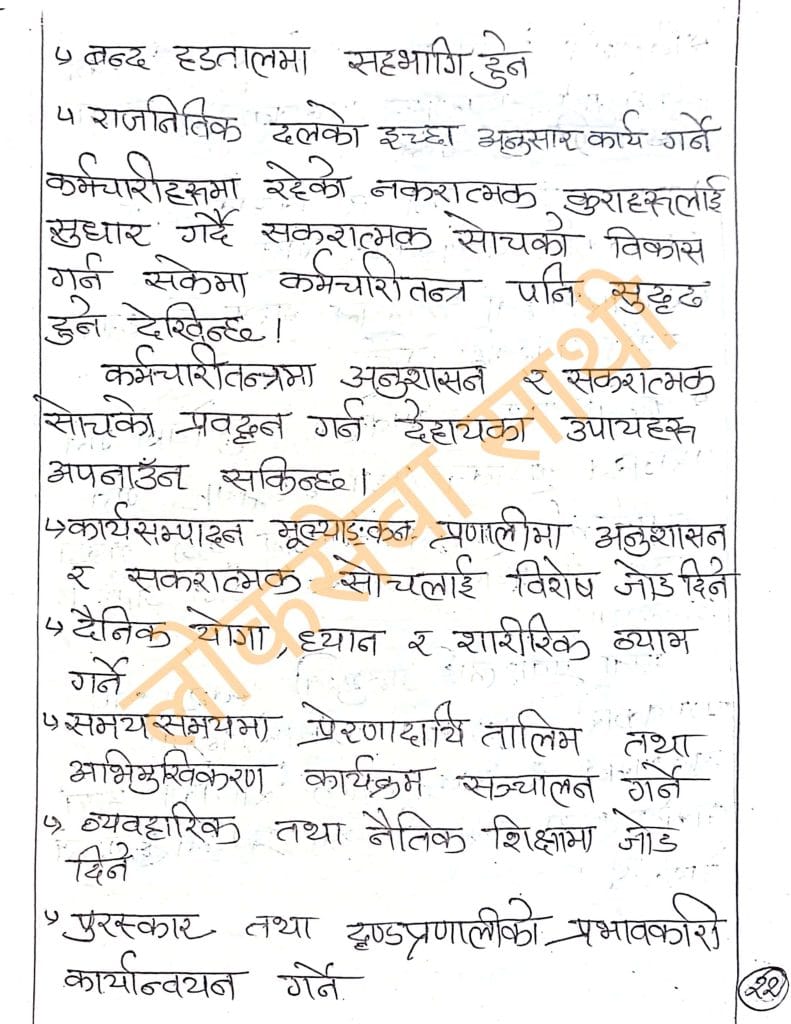 ↳ बन्द हडतालमा सहभागि हुने
↳ राजनितिक दलको इच्छा अनुसार कार्य गर्ने
कर्मचारीहरुमा रहेको नकरात्मक कुराहरुलाई
सुधार गर्दै सकरात्मक सोचको विकास
गर्न सकेमा कर्मचारीतन्त्र पनि सुदृढ
हुने देखिन्छ।
कर्मचारीतन्त्रमा अनुशासन र सकरात्मक
सोचको प्रवर्द्धन गर्न देहायका उपायहरु
अपनाउँन सकिन्छ।
↳ कार्यसम्पादन मूल्याङ्कन प्रणालीमा अनुशासन
र सकरात्मक सोचलाई विशेष जोड दिने
↳ दैनिक योगा, ध्यान र शारीरिक व्याम
गर्ने
↳ समय समयमा प्रेरणादायि तालिम तथा
अभिमुखिकरण कार्यक्रम सञ्चालन गर्ने
↳ व्यवहारिक तथा नैतिक शिक्षामा जोड
दिने
↳ पुरस्कार तथा दण्डप्रणालीको प्रभावकारी
कार्यान्वयन गर्ने
२२
लोकसेवा साथी